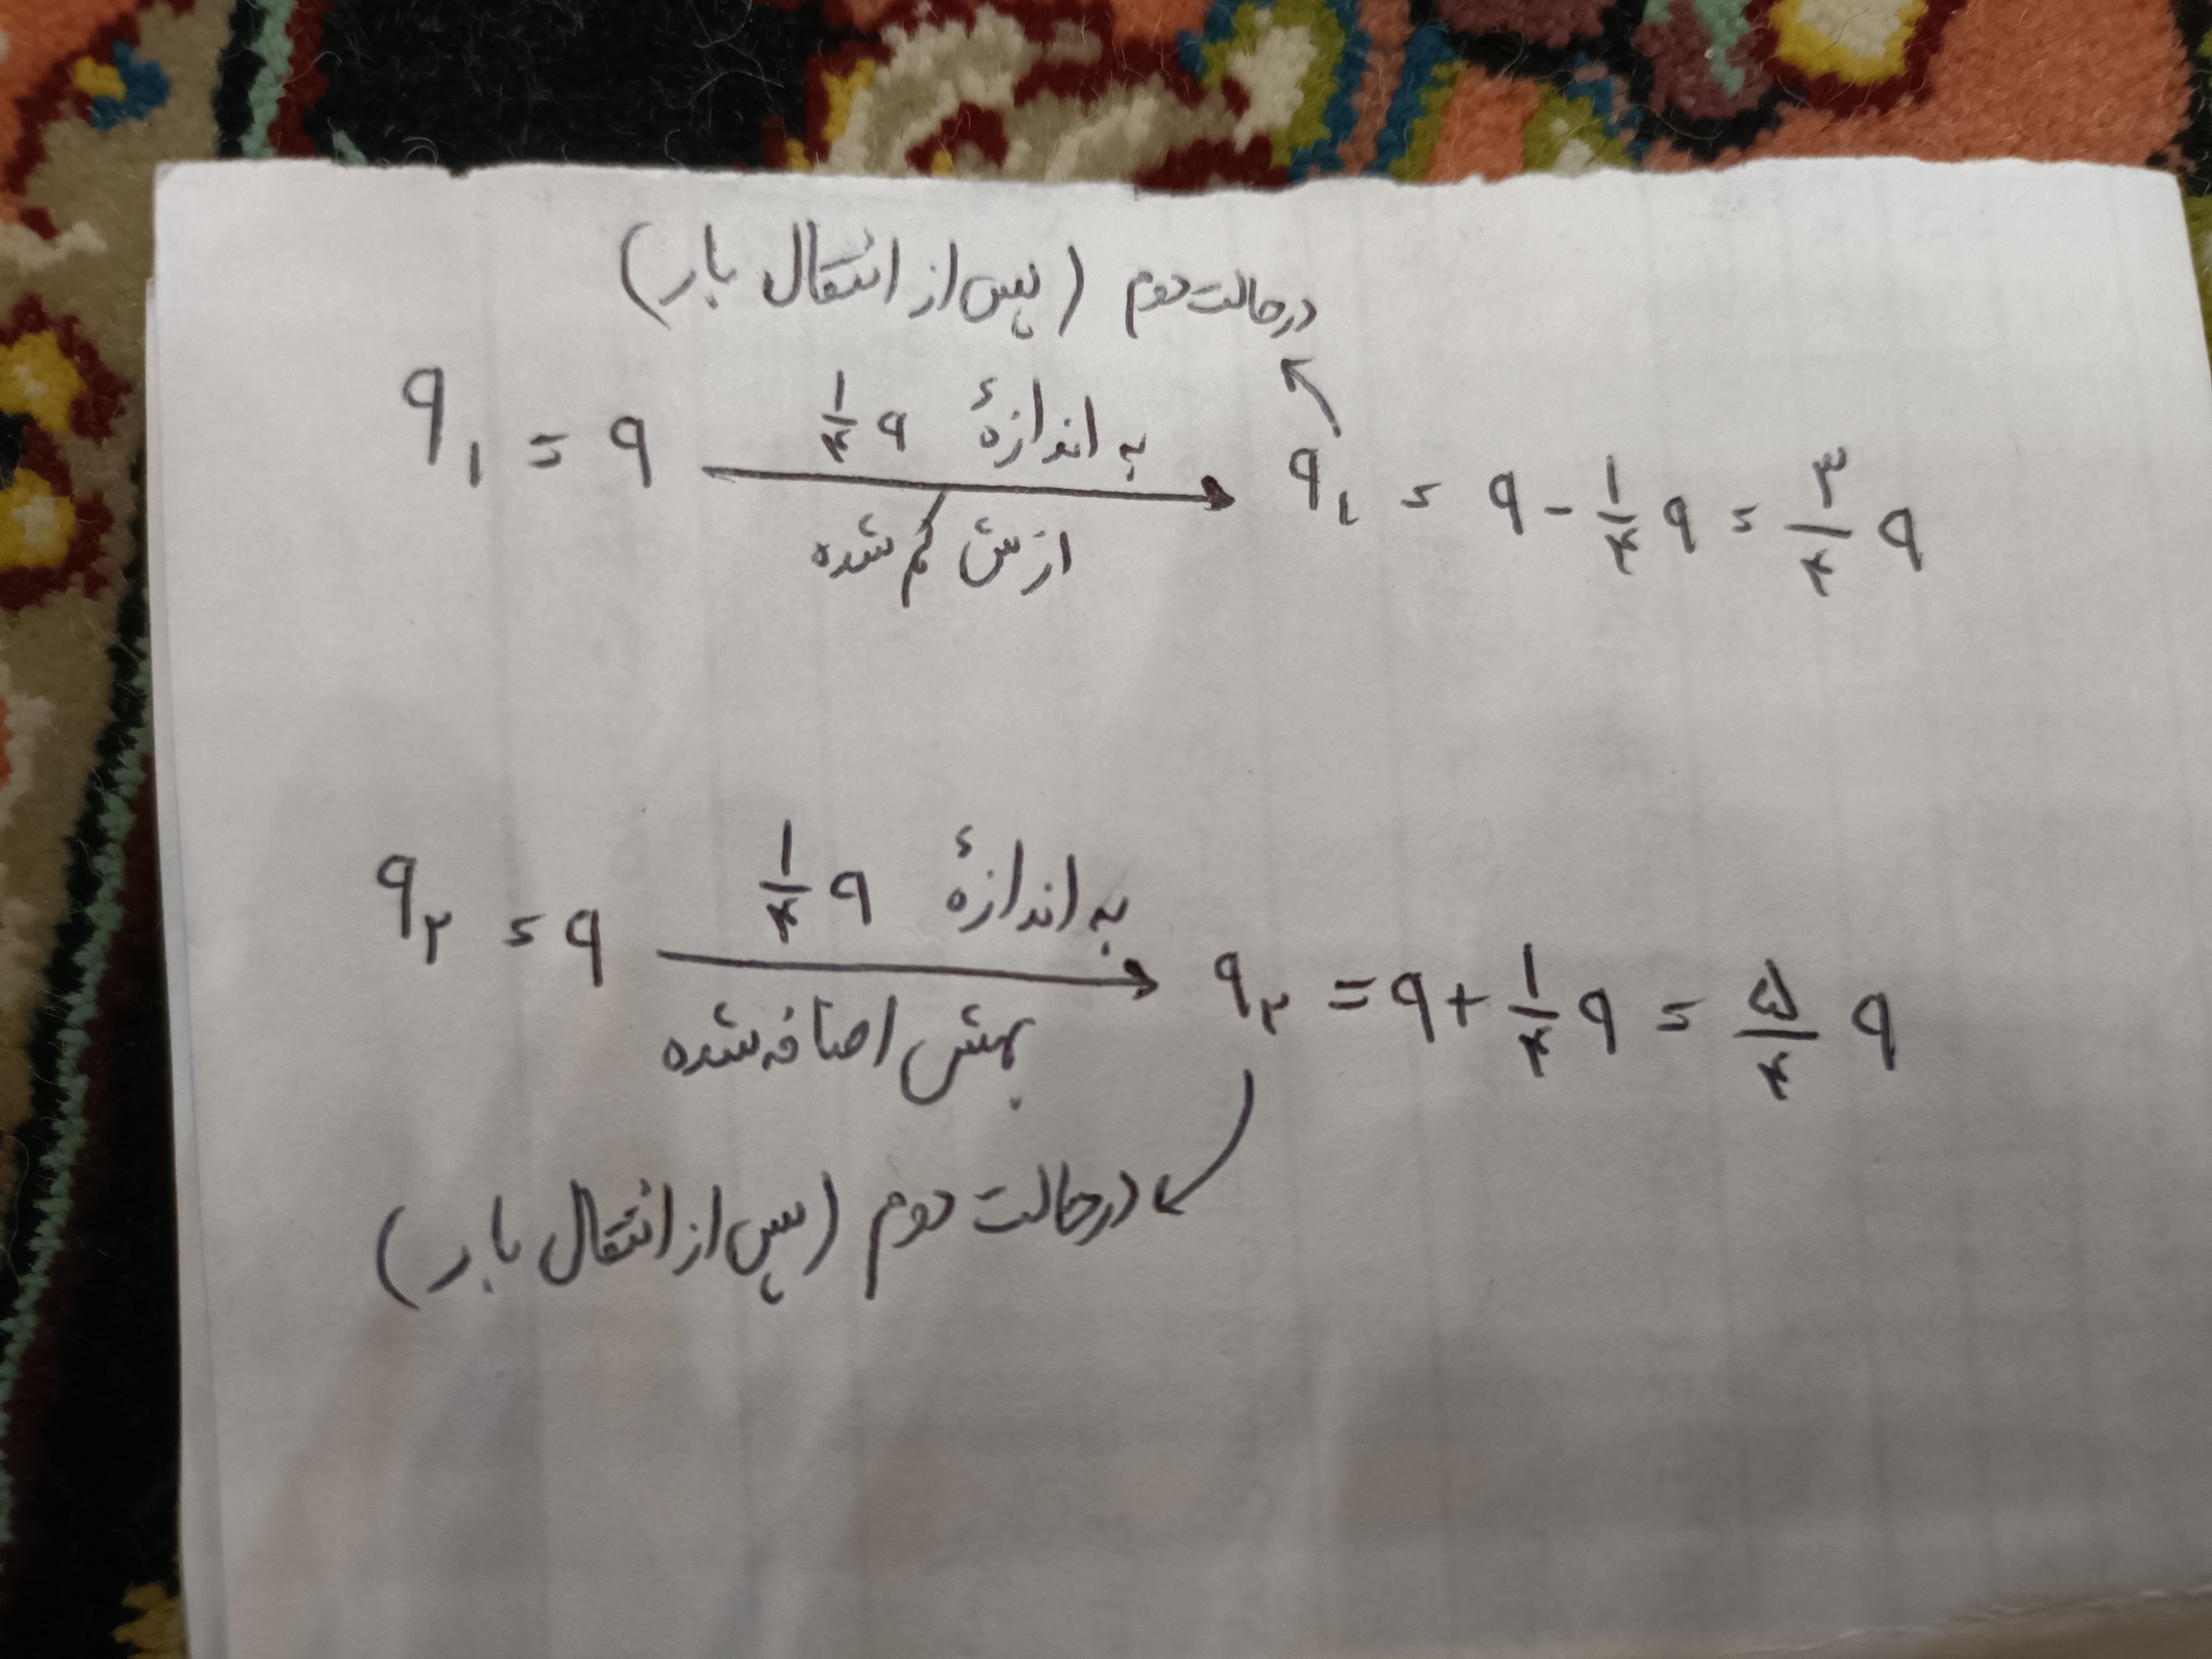 در حالت دوم (پس از انتقال بار)
q₁ = q به اندازهٔ ۱/۴ q از ش کم شده → q₁ = q - ۱/۴ q = ۳/۴ q
q₂ = q به اندازهٔ ۱/۴ q بهش اضافه شده → q₂ = q + ۱/۴ q = ۵/۴ q
در حالت دوم (پس از انتقال بار)